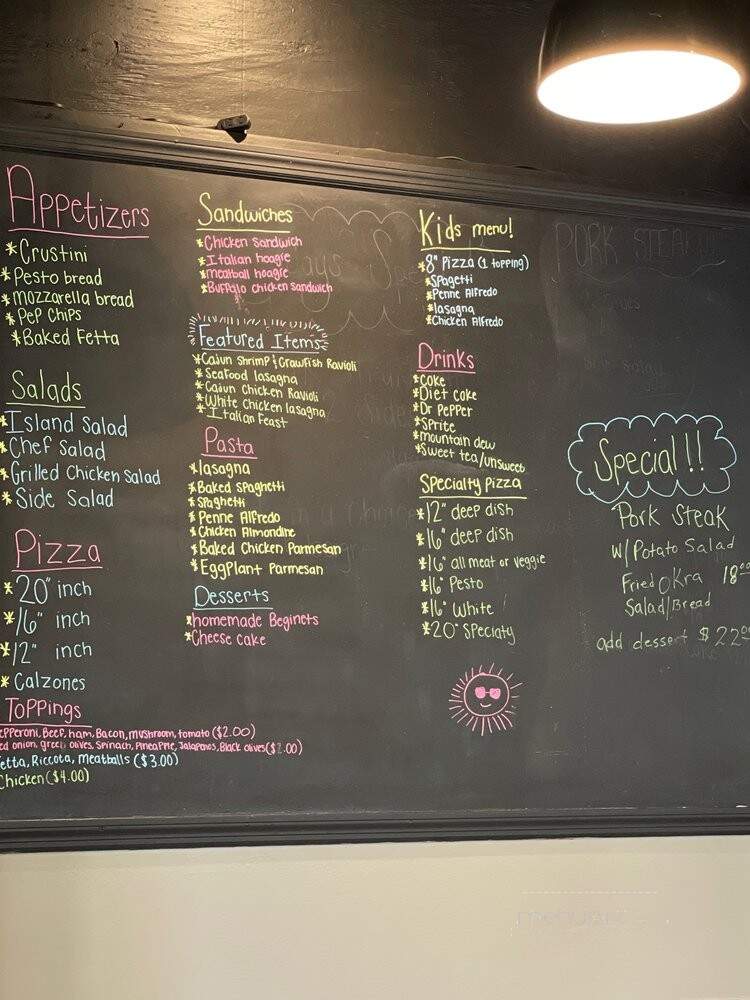 Appetizers
*Crustini
*Pesto bread
*mozzarella bread
*Pep Chips
*Baked Fetta
Salads
*Island Salad
*Chef Salad
*Grilled Chicken Salad
*Side Salad
Pizza
*20" inch
*16" inch
*12" inch
*Calzones
Toppings
epperoni, Beef, ham, Bacon, mushroom, tomato ($2.00)
ed onion, green olives, Spinach, Pineapple, Jalapenos, Black olives ($2.00)
etta, Riccota, meatballs ($3.00)
Chicken ($4.00)
Sandwiches
*Chicken Sandwich
*Italian hoagie
*meatball hoagie
*Buffalo chicken sandwich
Featured Items
*Cajun Shrimp & Crawfish Ravioli
*Seafood lasagna
*Cajun Chicken Ravioli
*White Chicken lasagna
*Italian Feast
Pasta
*lasagna
*Baked spaghetti
*Spaghetti
*Penne Alfredo
*Chicken Almondine
*Baked Chicken Parmesan
*Eggplant Parmesan
Desserts
*homemade Beginets
*Cheese cake
Kids menu!
*8" Pizza (1 topping)
*Spagetti
*Penne Alfredo
*lasagna
*Chicken Alfredo
Drinks
*Coke
*Diet coke
*Dr Pepper
*Sprite
*mountain dew
*Sweet tea/unsweet
Specialty Pizza
*12" deep dish
*16" deep dish
*16" all meat or veggie
*16" Pesto
*16" White
*20" Specialty
PORK STEAK
Special!!
Pork Steak
w/Potato Salad
Fried Okra 18.00
Salad/Bread
add dessert $22.00